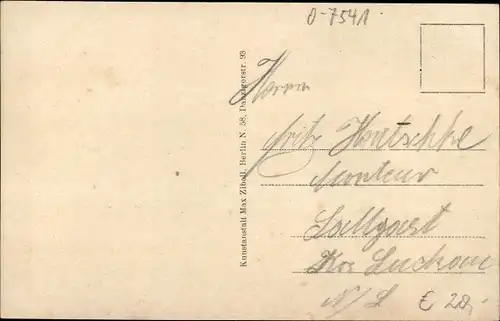 D-7541
Kunstanstalt Max Ziboll, Berlin N. 58, Danzigerstr. 93
Herrn
Fritz Hautschke
Monteur
Sallgast
Krs Luckau
N/L
€ 28,-